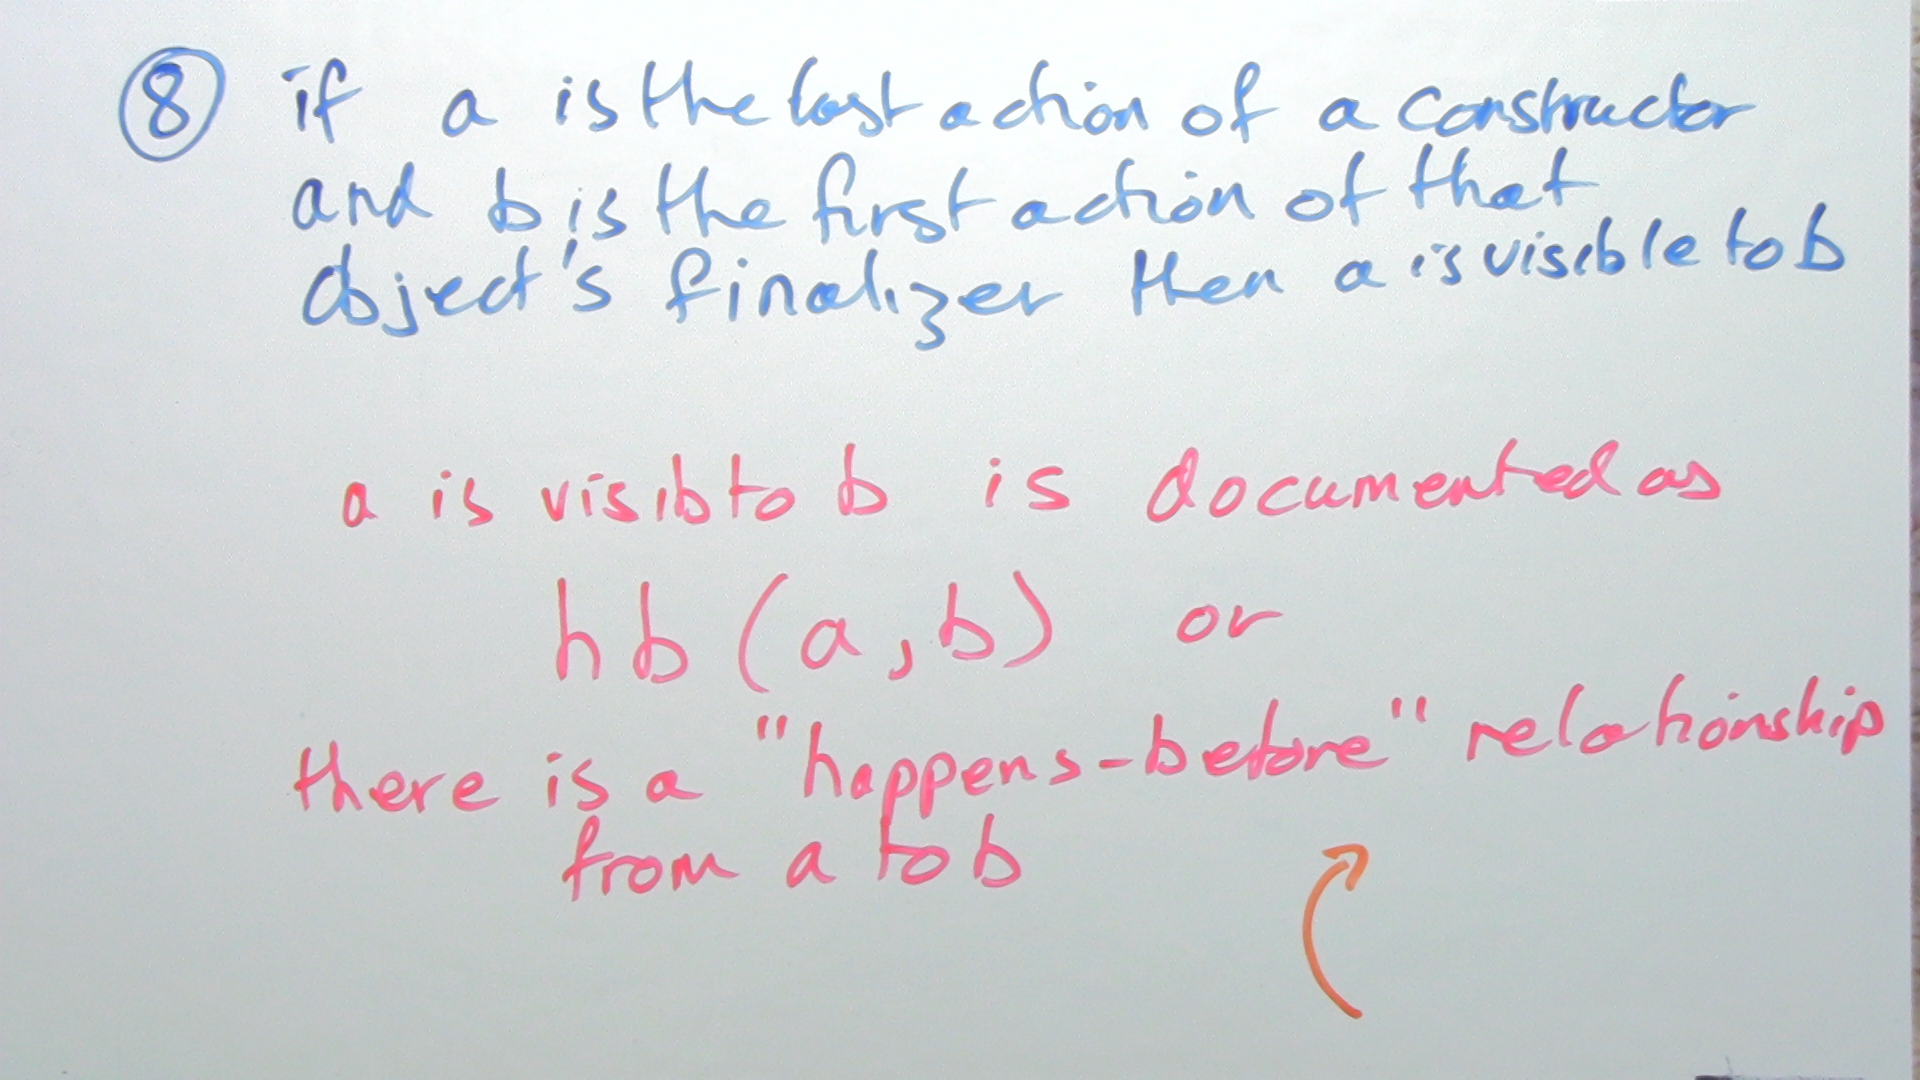 ⑧ if a is the last action of a constructor
and b is the first action of that
object's finalizer then a is visible to b
a is visib to b is documented as
hb (a, b) or
there is a "happens-before" relationship
from a to b